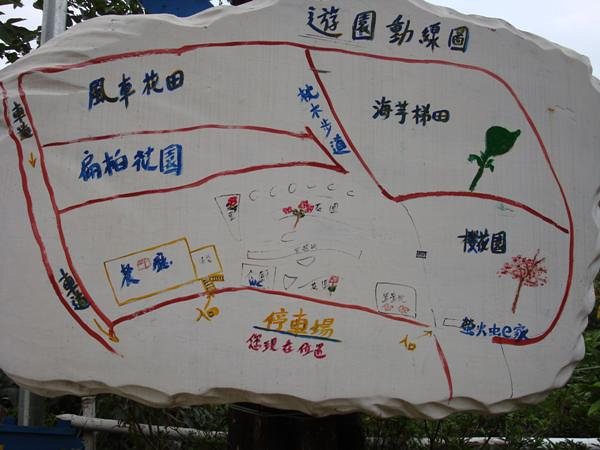 遊園動線圖
風車花田
車道
枕木步道
海芋梯田
扁柏花園
櫻花園
花園
餐廳
WC
車道
入口
停車場
您現在位置
入口
螢火虫の家